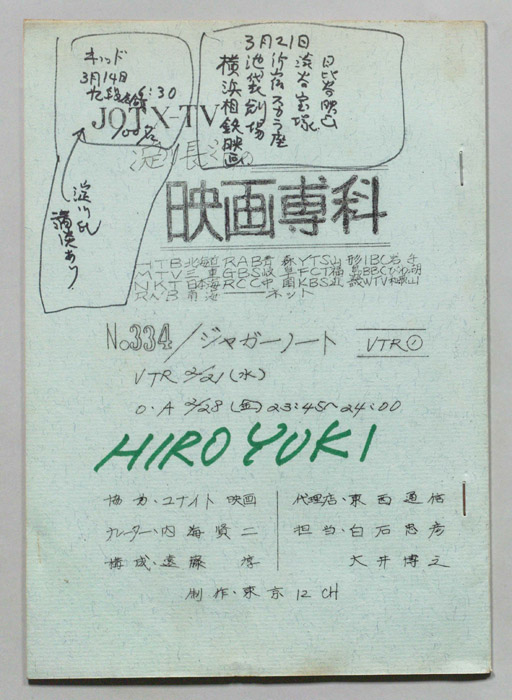 キッド
3月14日
九段会館6:30
100名
淀川氏
講演あり
3月21日
日比谷映画
渋谷宝塚
新宿スカラ座
池袋劇場
横浜相鉄映画
JOTX-TV
淀川長治の
映画専科
HTB北海道 RAB青森 YTS山形 IBC岩手
MTV三重 GBS岐阜 FCT福島 BBCびわ湖
NKT日本海 RCC中国 KBS近畿 WTV和歌山
RNB南海 ネット
No.334/ジャガーノート VTR①
VTR 2/21(水)
O.A 2/28(金)23:45〜24:00
HIROYUKI
協力・ユナイト映画
ナレーター・内海賢二
構成・遠藤 淳
代理店・東西通信
担当・白石忠彦
大井博之
制作・東京12CH